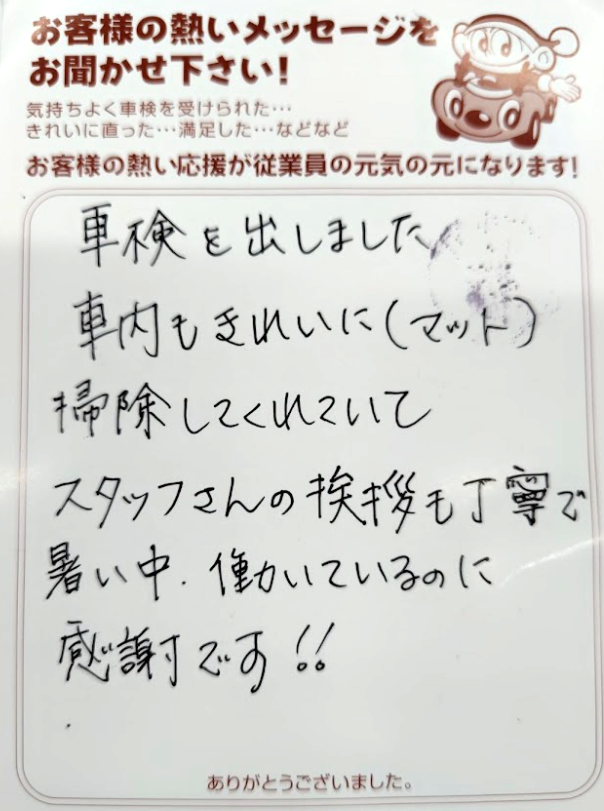 お客様の熱いメッセージを
お聞かせ下さい!
気持ちよく車検を受けられた…
きれいに直った…満足した…などなど
お客様の熱い応援が従業員の元気の元になります!
車検を出しました
車内もきれいに(マット)
掃除してくれていて
スタッフさんの挨拶も丁寧で
暑い中、働かいているのに
感謝です!!
ありがとうございました。